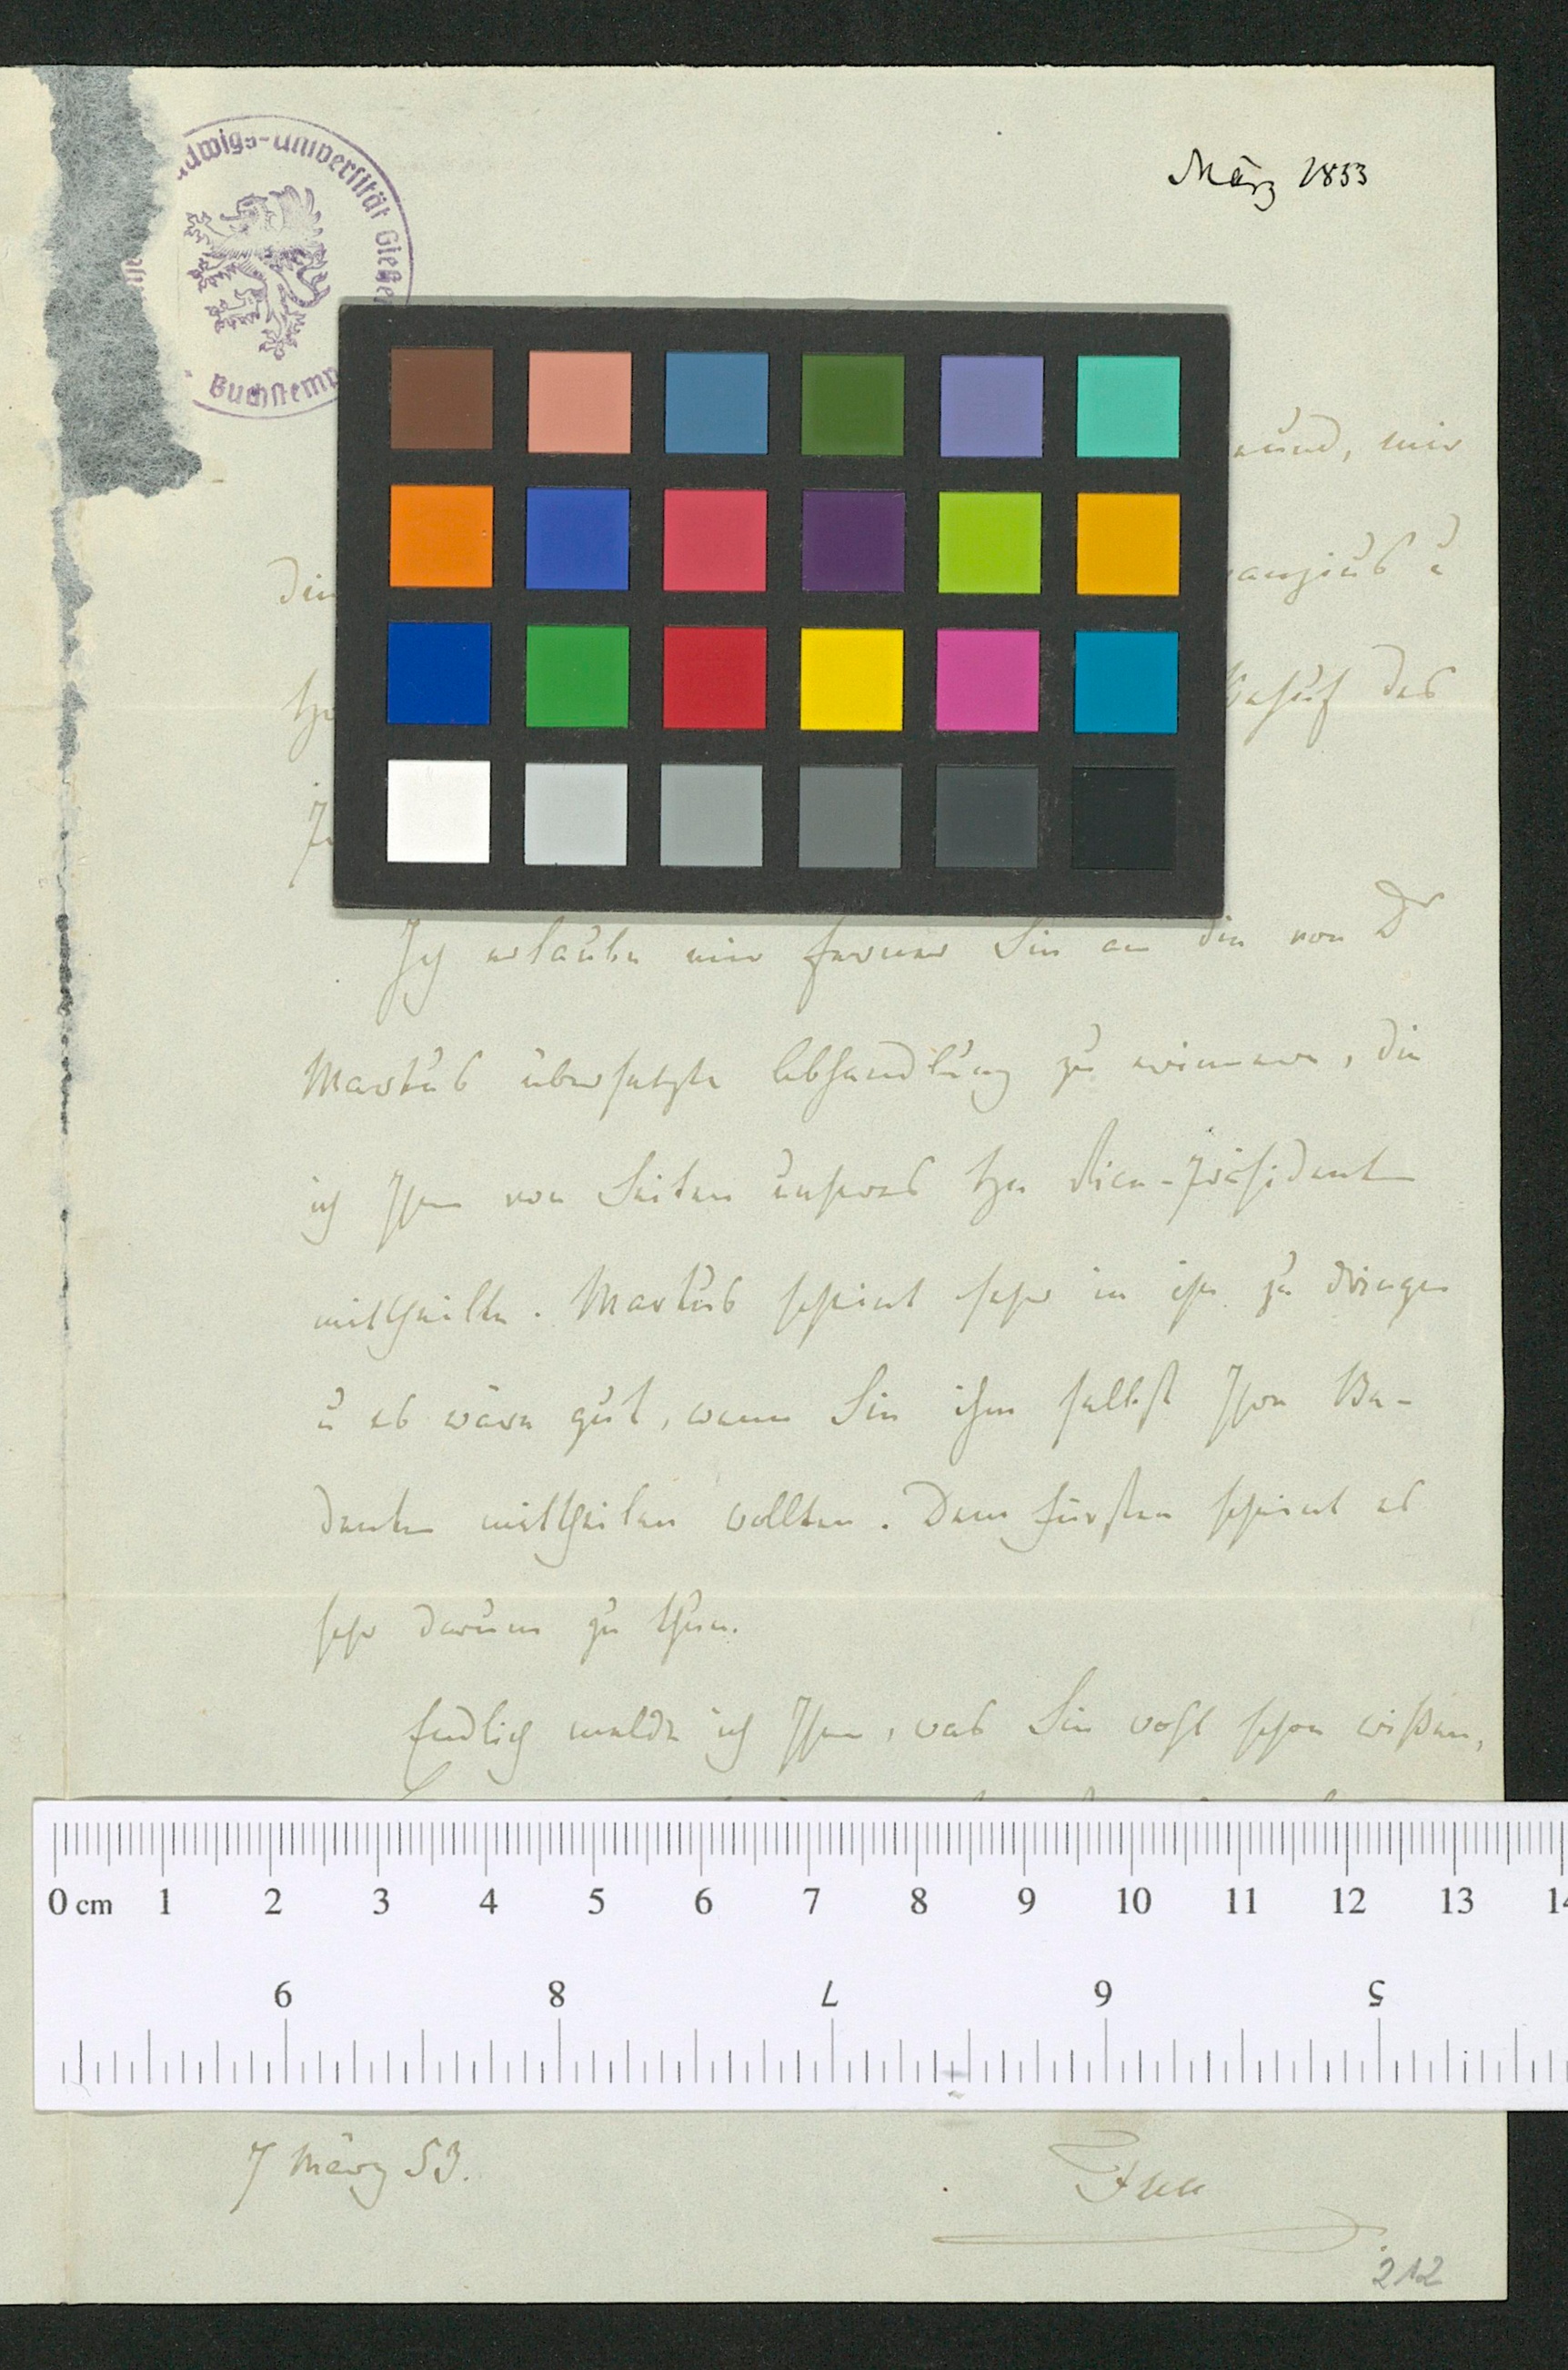 dwigs-Universität Gießen
Buchstemp
März 1853
mir
Die
des
Ich erlaube mir ferner Sie an die von Dr
Markus übersetzte Abhandlung zu erinnern, die
ich Ihnen von Seiten unseres Hn Vice-Präsidenten
mittheilte. Markus scheint sehr in ihn zu dringen
u es wäre gut, wenn Sie ihm selbst Ihre Be-
denken mittheilen wollten. Dem Fürsten scheint es
sehr darum zu thun.
Endlich melde ich Ihnen, was Sie wohl schon wißen,
0 cm 1 2 3 4 5 6 7 8 9 10 11 12 13 14
9 8 7 6 5
7 März 53.
212